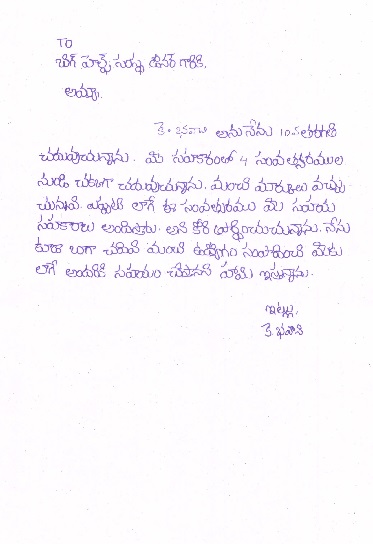 TO
బిగ్ హెల్ప్ సంస్థ డోనర్ గారికి,
అమ్మా,
కె. భవాని అను నేను 10వ తరగతి
చదువుచున్నాను. మీ సహకారంతో 4 సంవత్సరముల
నుండి చక్కగా చదువుచున్నాను. మంచి మార్కులు వచ్చు
చున్నవి. ఎప్పటి లాగే ఈ సంవత్సరము మీ సహాయ
సహకారాలు అందిస్తారు. అని కోరి ప్రార్థించుచున్నాను. నేను
కూడా బాగా చదివి మంచి ఉద్యోగం సంపాదించి మీకు
లాగే అందరికి సహాయం చేస్తానని హామి ఇస్తున్నాను.
ఇట్లు,
కె. భవాని